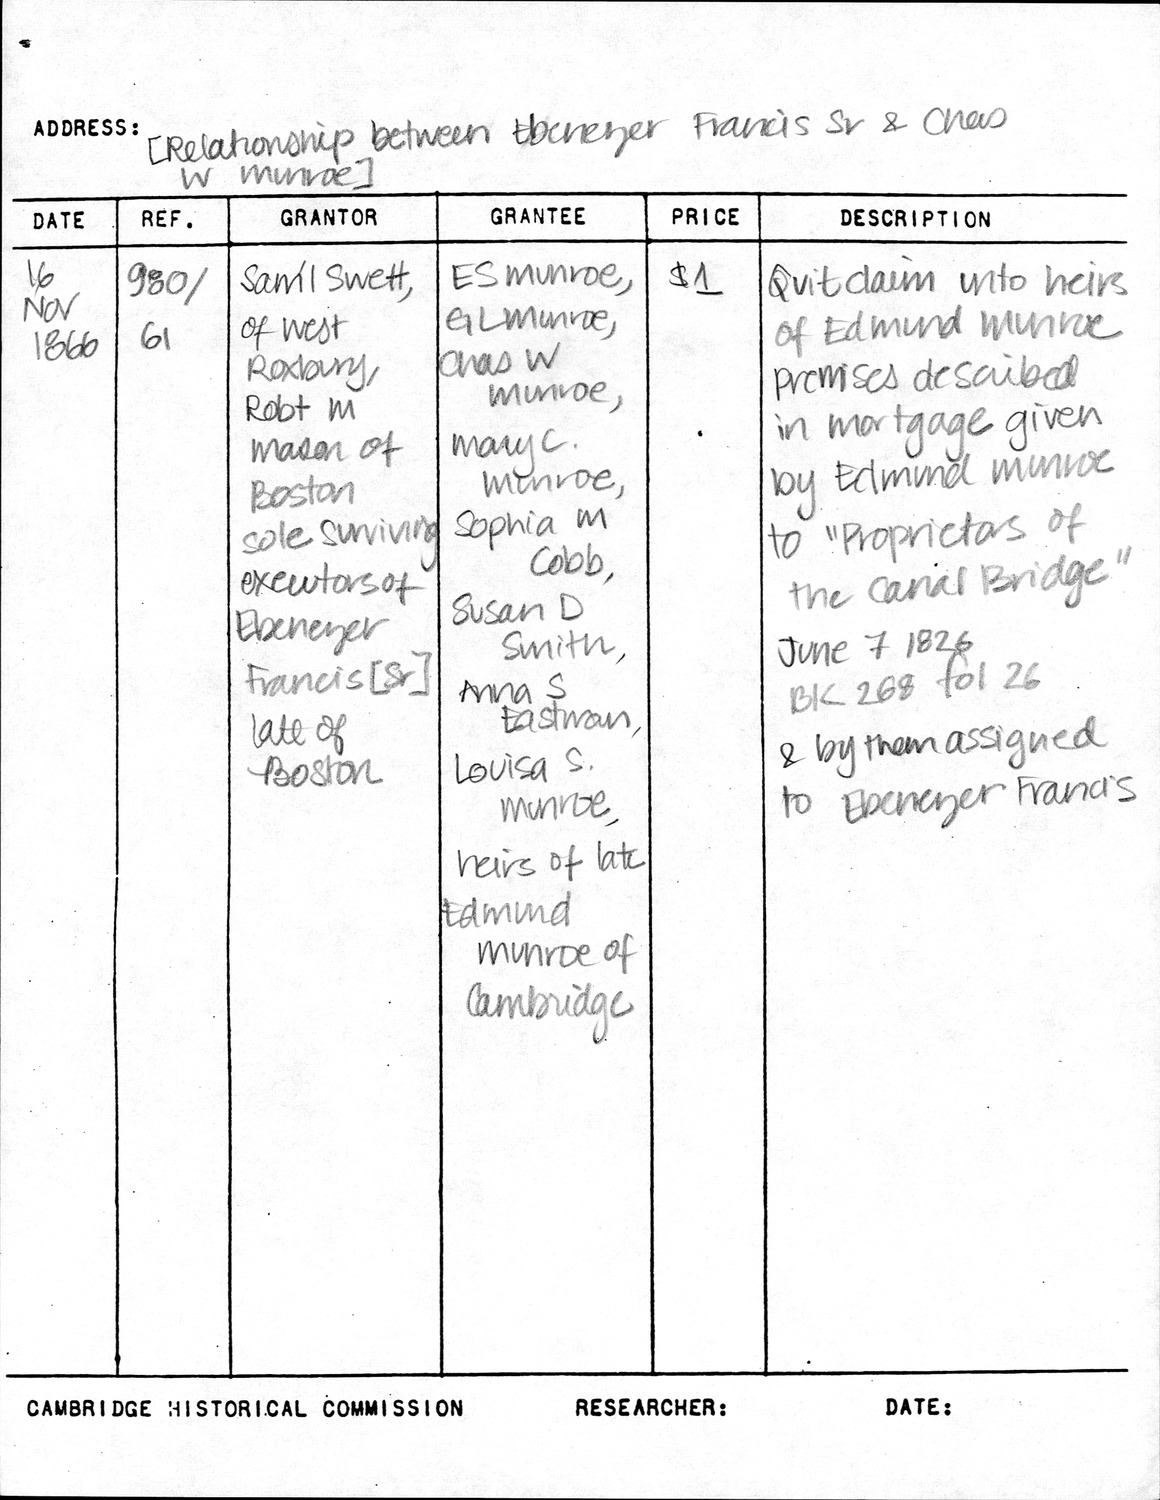 ADDRESS: [Relationship between Ebenezer Francis Sr & Chas
W Munroe]
DATE REF. GRANTOR GRANTEE PRICE DESCRIPTION
16
NOV
1866
980/
61
Sam'l Swett,
of West
Roxbury,
Robt M
Mason of
Boston
sole surviving
executors of
Ebenezer
Francis [Sr]
late of
Boston
ES Munroe,
G L Munroe,
Chas W
Munroe,
Mary C.
Munroe,
Sophia M
Cobb,
Susan D
Smith,
Anna S
Eastman,
Louisa S.
Munroe,
heirs of late
Edmund
Munroe of
Cambridge
$1
Quitclaim unto heirs
of Edmund Munroe
premises described
in mortgage given
by Edmund Munroe
to "Proprietors of
the Canal Bridge"
June 7 1826
BK 268 fol 26
& by them assigned
to Ebenezer Francis
CAMBRIDGE HISTORICAL COMMISSION RESEARCHER: DATE: